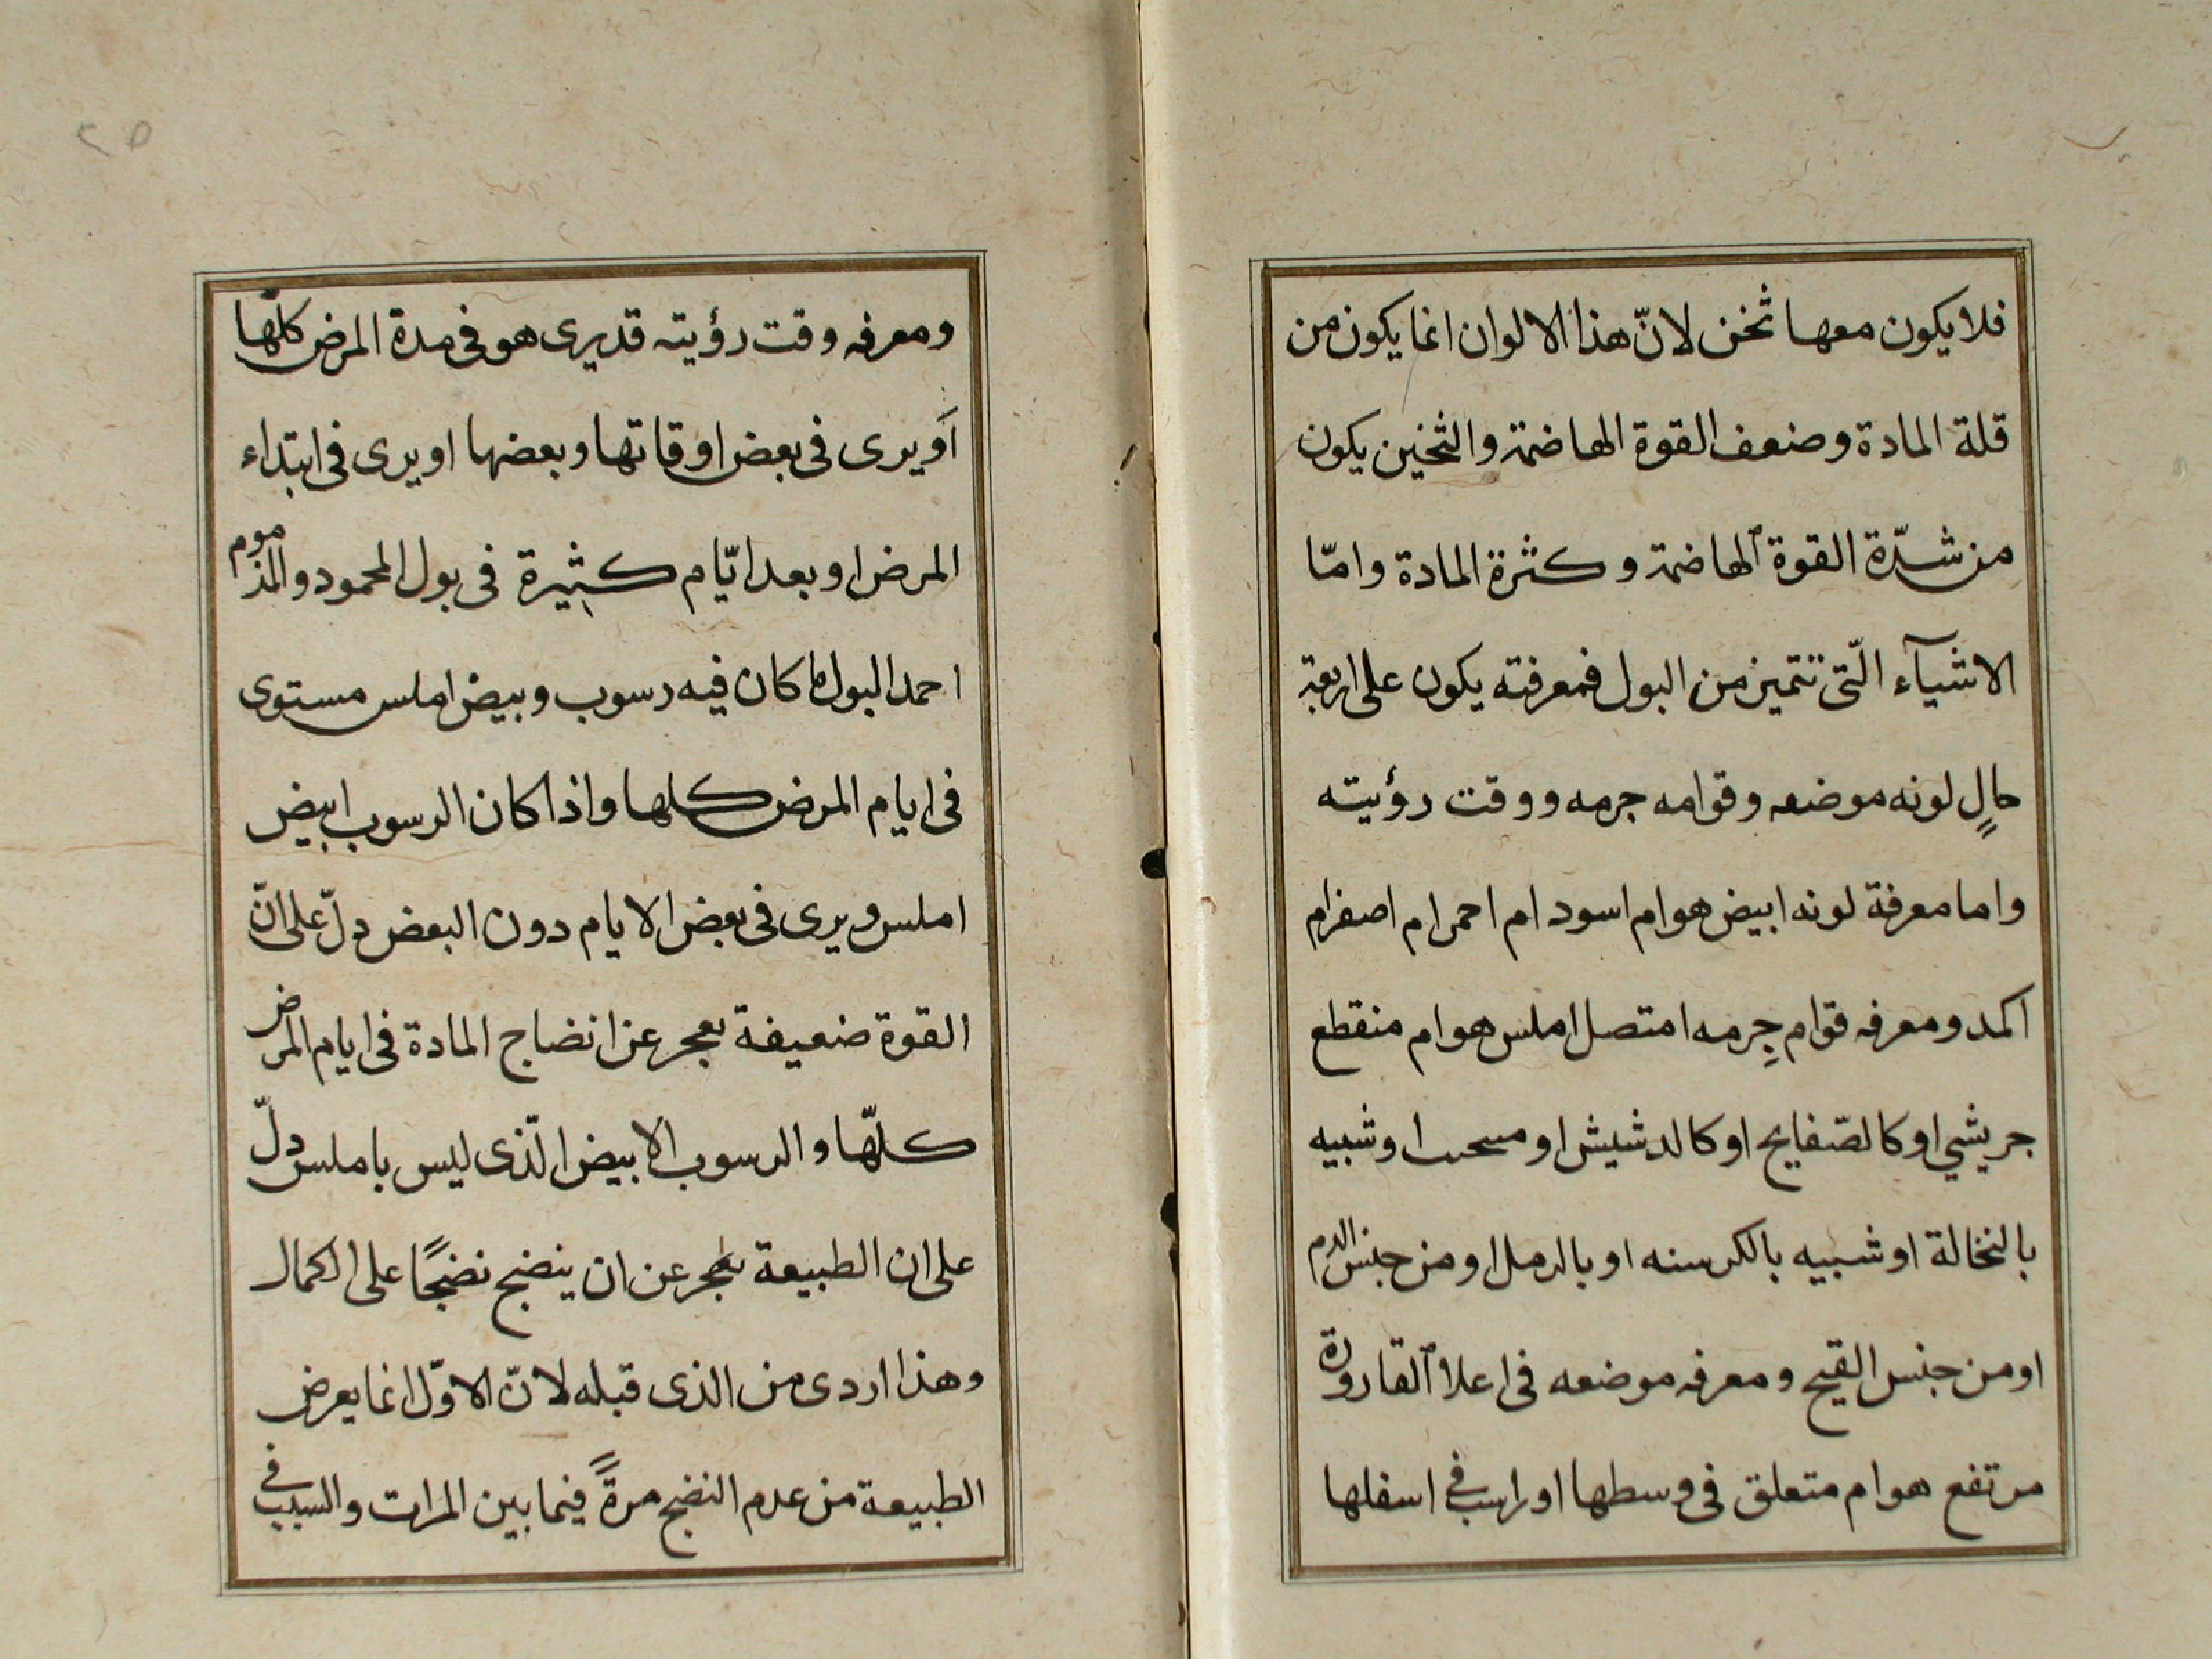 فلا يكون معها ثخن لانّ هذا الالوان انما يكون من
قلة المادة وضعف القوة الهاضمة والثخين يكون
من شدّة القوة الهاضمة وكثرة المادة وامّا
الاشيآء الّتى تتميز من البول فمعرفته يكون على اربعة
حالٍ لونه موضعه وقوامه جرمه ووقت رؤيته
واما معرفة لونه ابيض هو ام اسود ام احمر ام اصفر ام
اكمد ومعرفه قوام جِرمه امتصل املس هو ام منقطع
جريشي او كالصّفايح او كالدشيش او شبيه
بالنخالة او شبيه بالكرسنه او بالرمل او من جنس الدم
او من جنس القيح ومعرفه موضعه فى اعلا القارورة
مرتفع هو ام متعلق فى وسطها او راسب في اسفلها
ومعرفه وقت رؤيته قد يرى هو فى مدة المرض كلّها
اَو يرى فى بعض اوقاتها وبعضها او يرى فى ابتداء
المرض او بعد ايّام كثيرة فى بول المحمود والمذموم
احمد البول ما كان فيه رسوب وبيض املس مستوى
فى ايام المرض كلها واذا كان الرسوب ابيض
املس ويرى فى بعض الايام دون البعض دلّ على انّ
القوة ضعيفة يعجر عن انضاج المادة فى ايام المرض
كلّها والرسوب الابيض الّذى ليس باملس دلّ
على ان الطبيعة يعجر عن ان ينضج نضجًا على الكمال
وهذا اردى من الذى قبله لانّ الاوّل انما يعرض
الطبيعة من عدم النضج مرةً فيما بين المرات والسبب في
٢٥